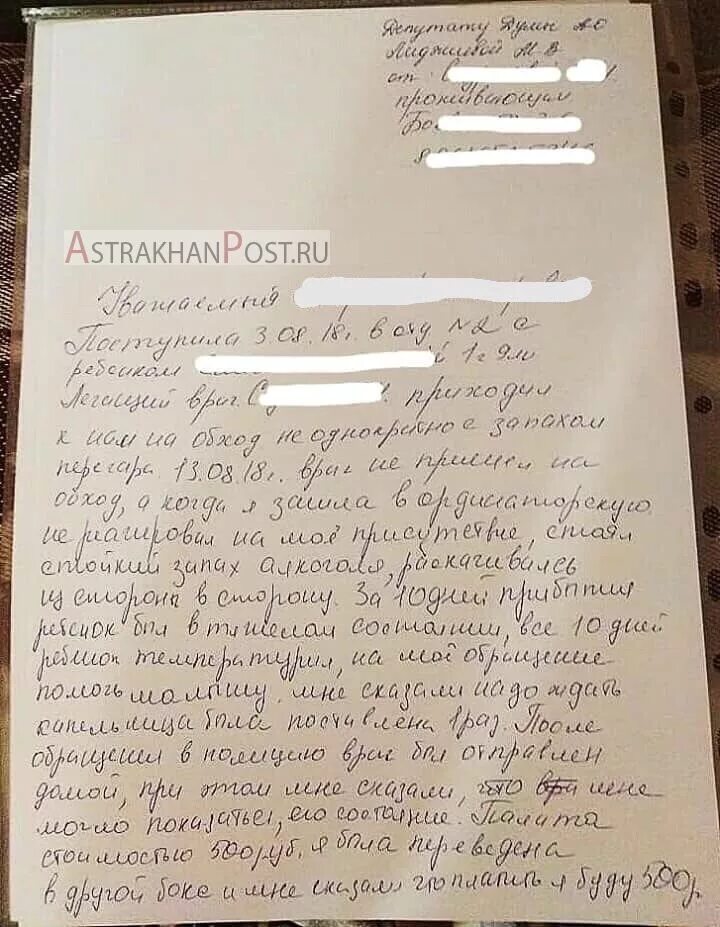 Депутату Думы АО
Лиджиевой М.В
от С
проживающим
Бо
8
ASTRAKHANPOST.RU
Уважаемый
Поступила 3.08.18г. в отд №2 с
ребенком 1г 9м
Легащий врач С приходил
к нам на обход не однократно с запахом
перегара. 13.08.18г. врач не пришел на
обход, а когда я зашла в ординаторскую.
не реагировал на моё присутствие, стоял
стойкий запах алкоголя, раскачиваясь
из стороны в сторону. За 10 дней прибытия
ребёнок был в тяжелом состоянии, все 10 дней
ребёнок температурил, на моё обращение
помочь малышу. мне сказали надо ждать
капельница была поставлена 1 раз. После
обращения в полицию врач был отправлен
домой, при этом мне сказали, что мне
могло показаться, его состояние. Палата
стоимостью 500 руб. я была переведена
в другой бокс и мне сказали что платить я буду 500р.